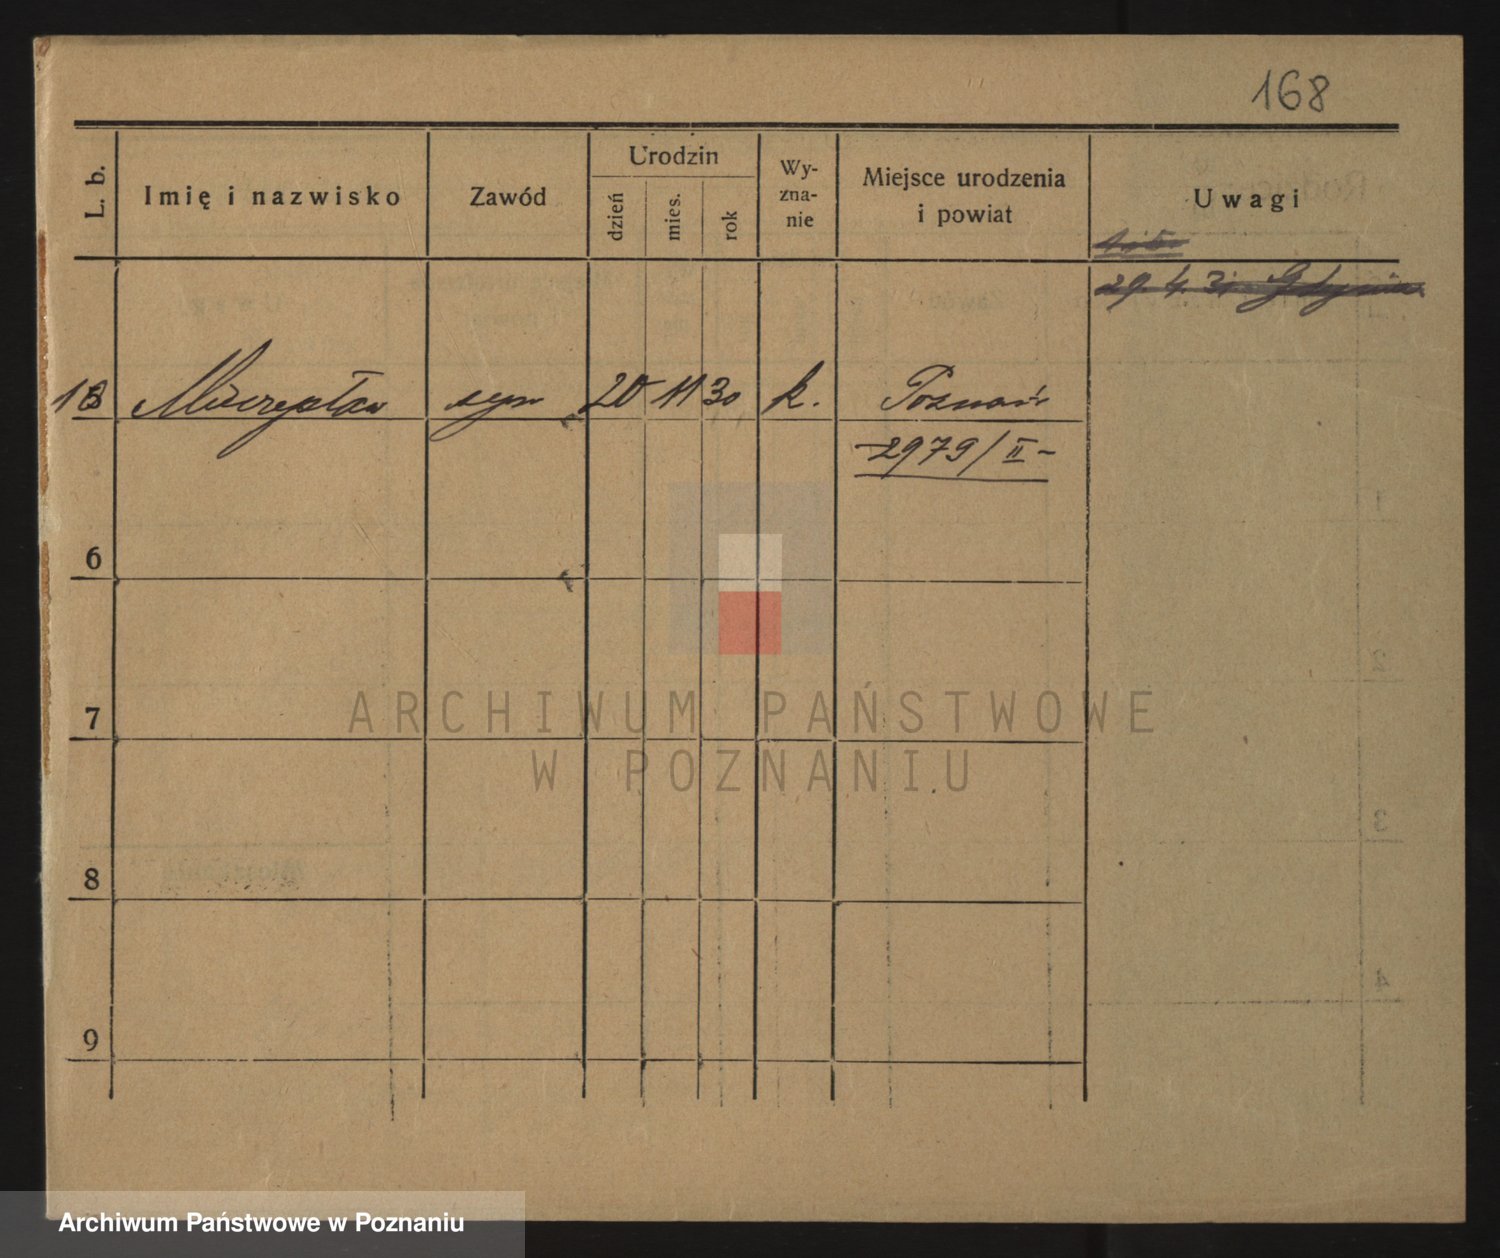 168
L. b.
Imię i nazwisko
Zawód
Urodzin
dzień
mies.
rok
Wy-
zna-
nie
Miejsce urodzenia
i powiat
Uwagi
29. 4. 31 Gdynia
Mieczysław syn 20 11 30 k. Poznań
2979/II-
6
7
8
9
ARCHIWUM PAŃSTWOWE
W POZNANIU
Archiwum Państwowe w Poznaniu